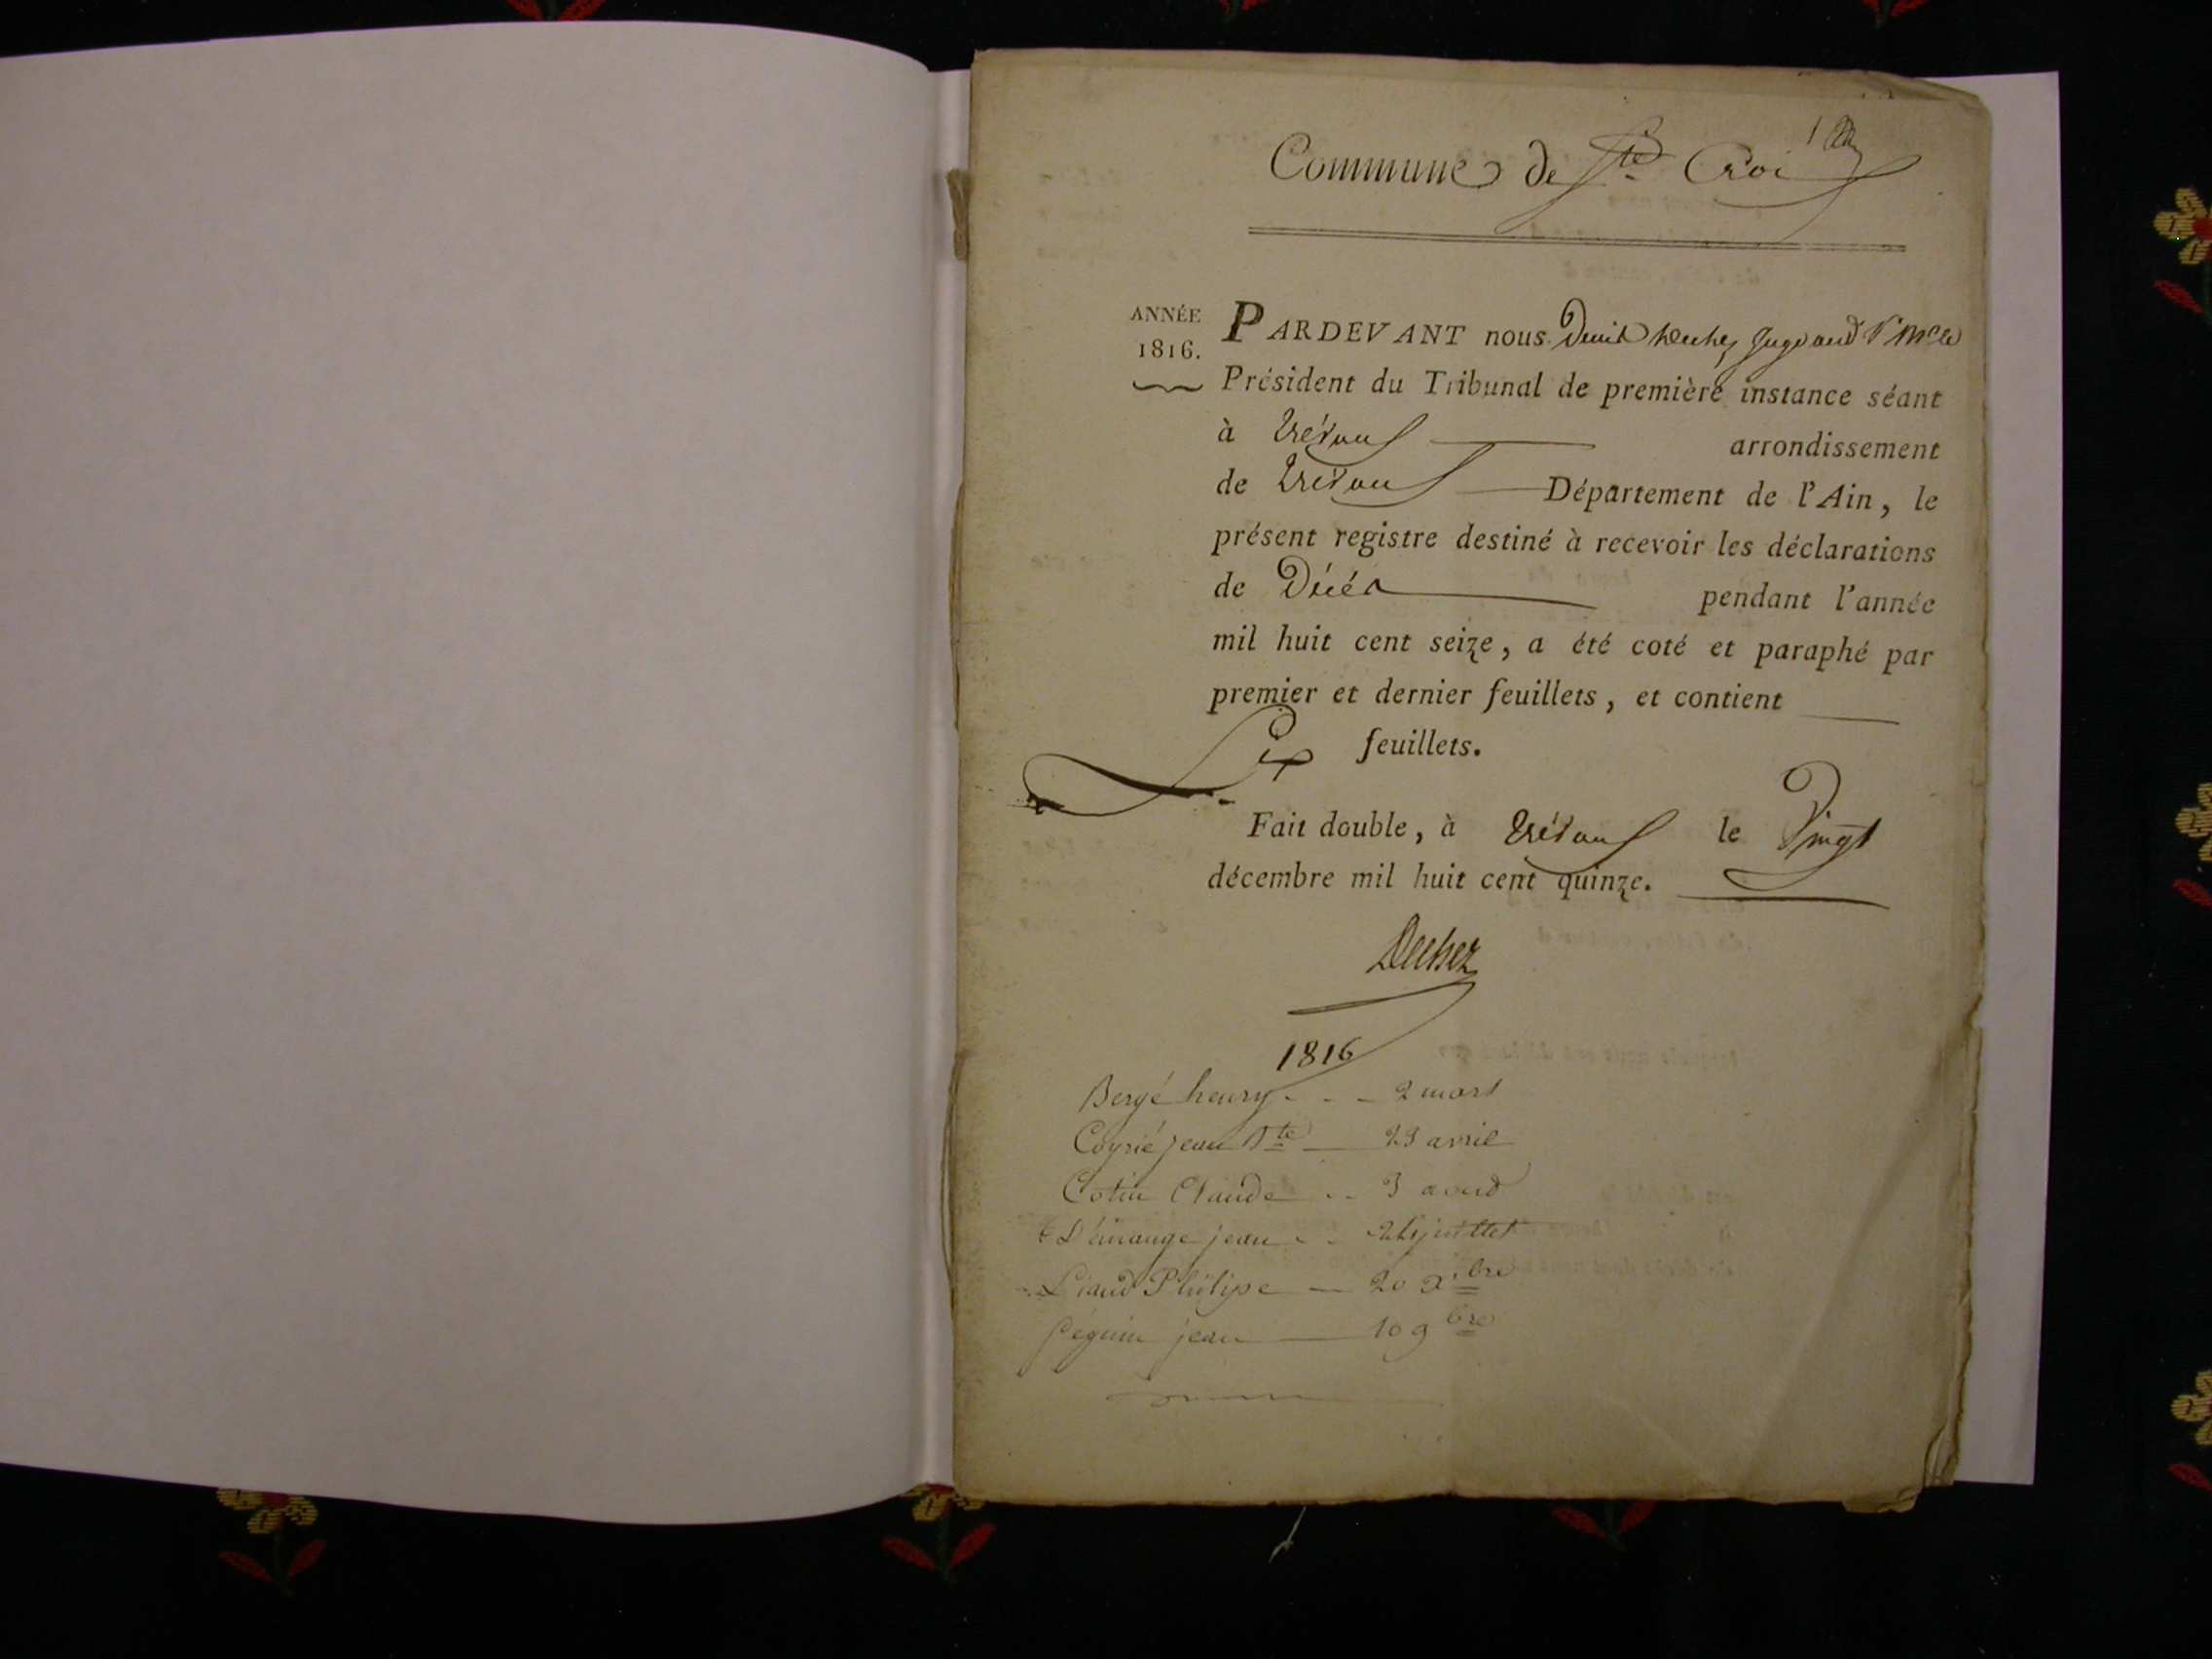 Commune de Ste Croi
ANNÉE
1816.
PARDEVANT nous Denis Dechez juge
Président du Tribunal de première instance séant
à Trévoux arrondissement
de Trévoux Département de l'Ain, le
présent registre destiné à recevoir les déclarations
de Décés pendant l'année
mil huit cent seize, a été coté et paraphé par
premier et dernier feuillets, et contient
Six feuillets.
Fait double, à Trévoux le Vingt
décembre mil huit cent quinze.
Dechez
1816
Bergé henry - - - 2 mars
jean Bte - 23 avril
Cotin Claude - - 3 aoud
jean - - juillet
Philipe - 20 Xbre
Péguin jean - 10 9bre